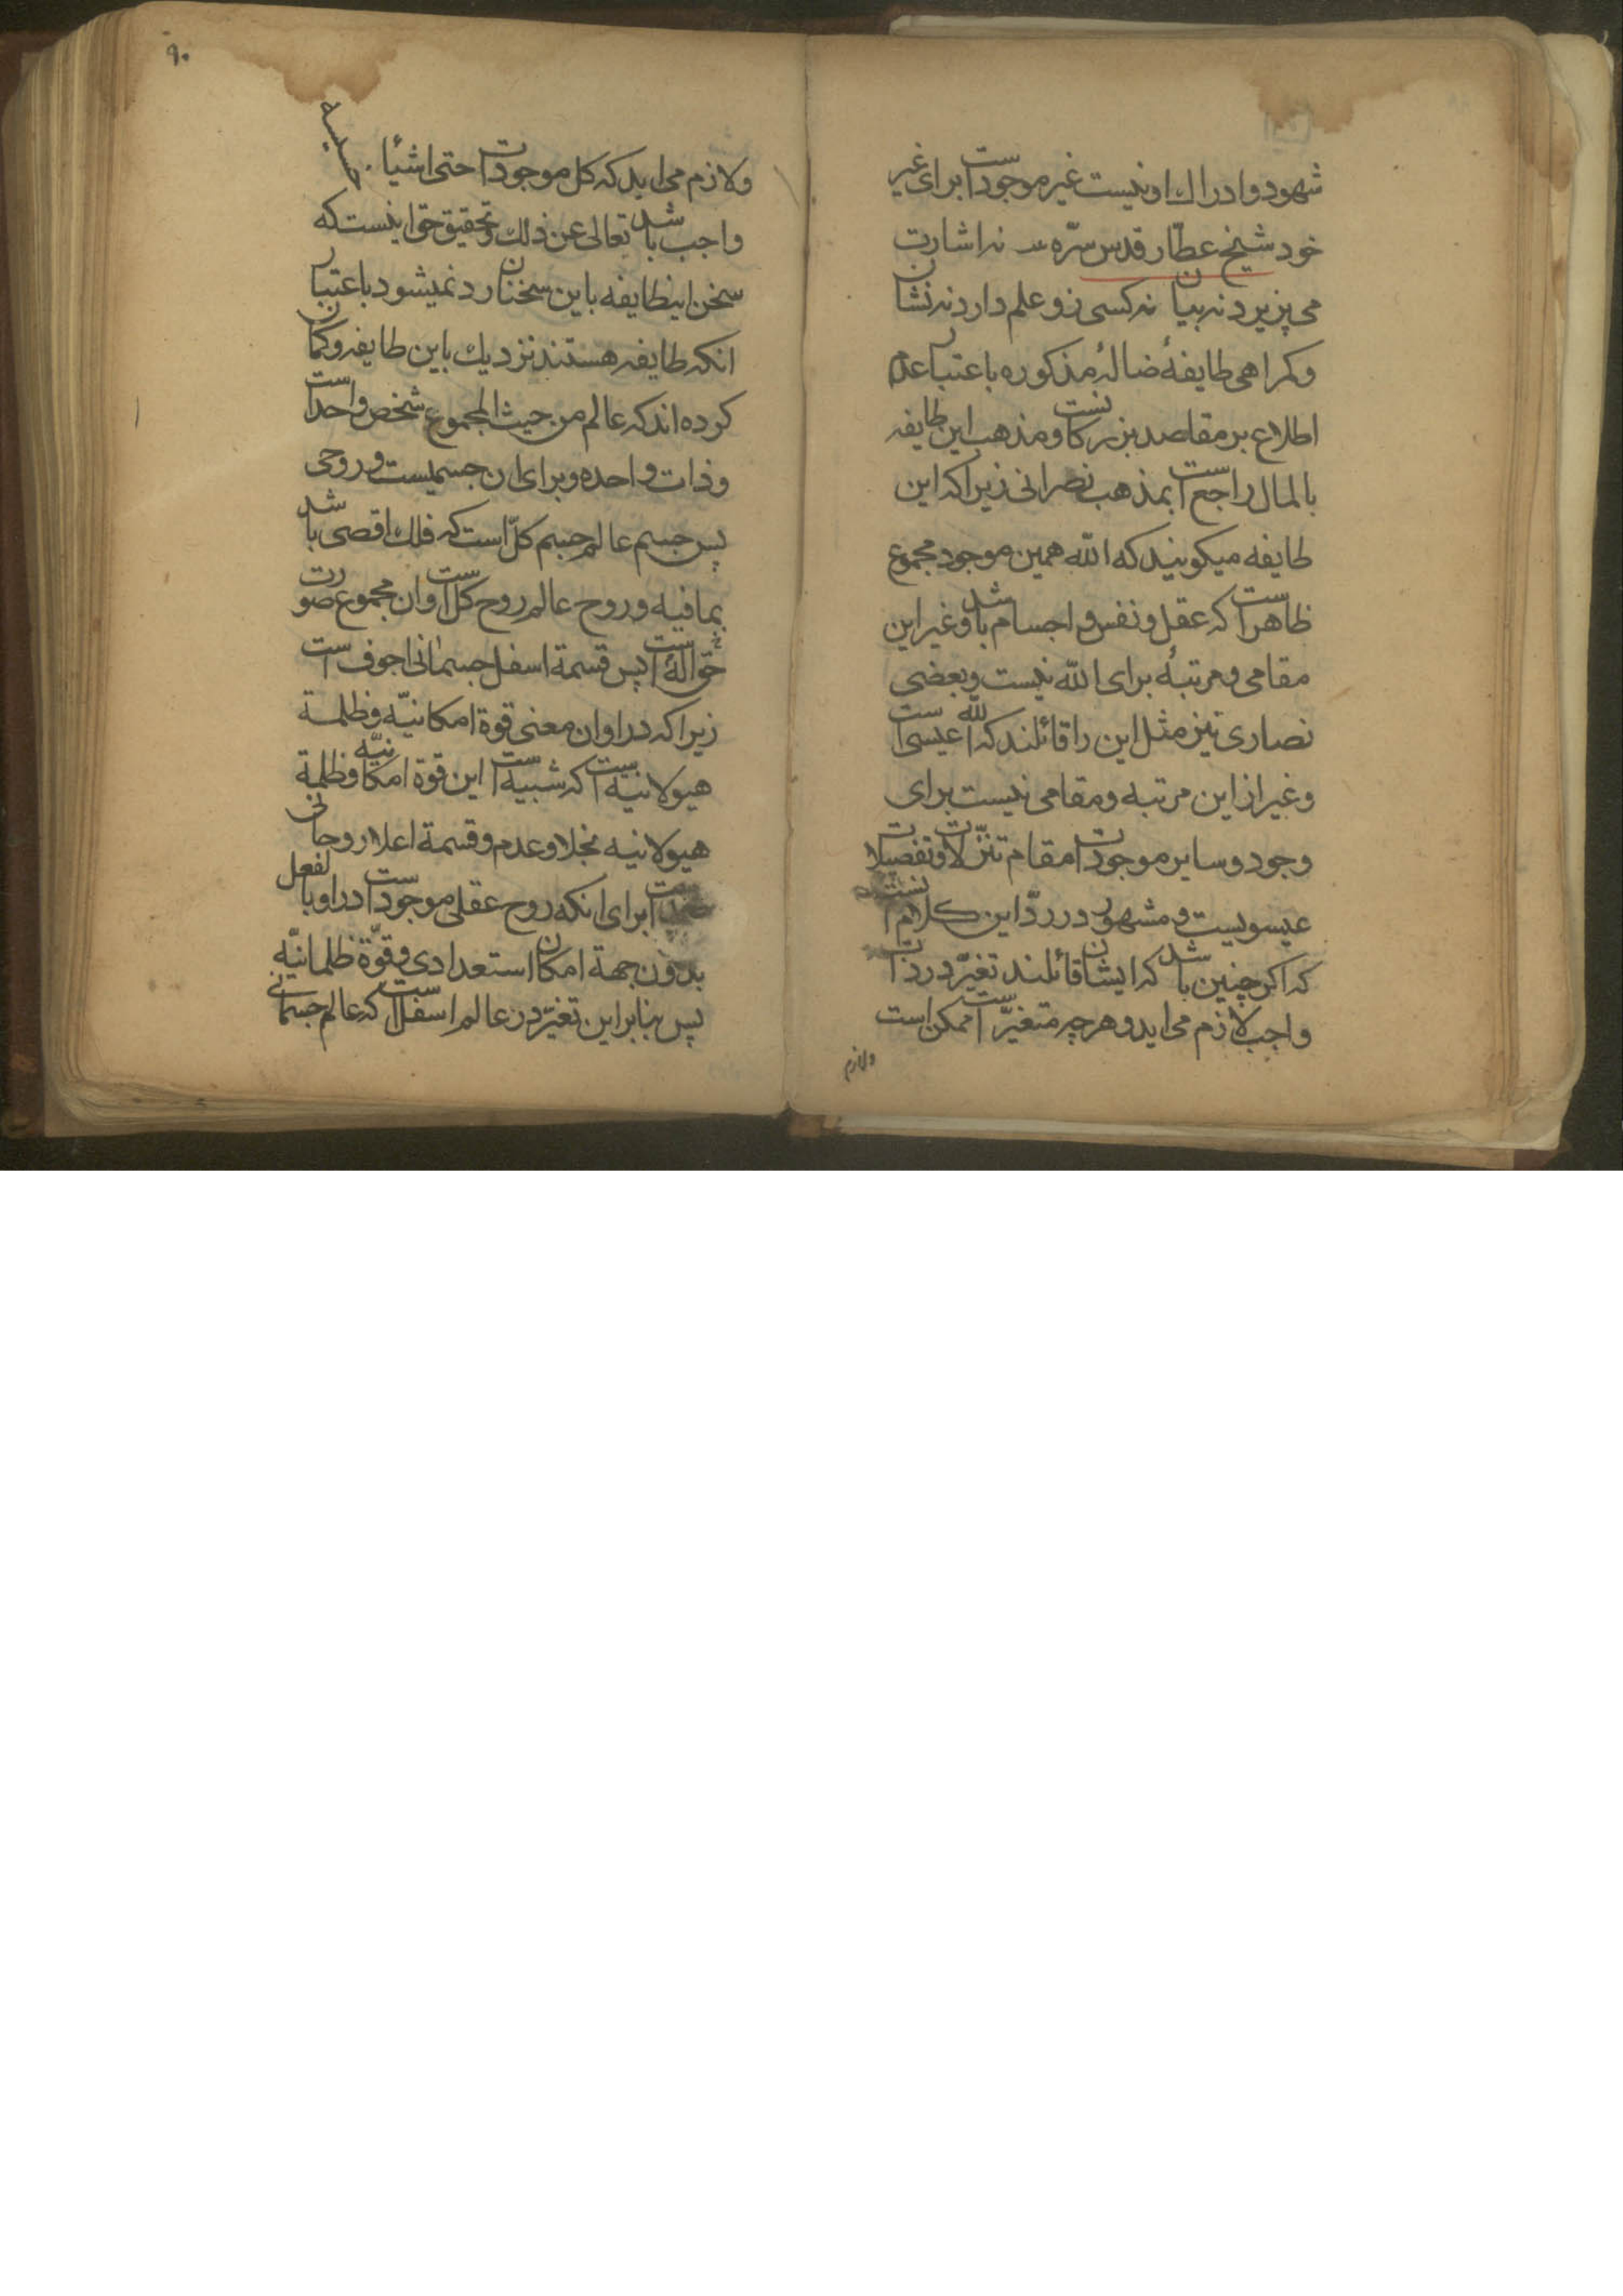 شهود وادراك اونیست غیر موجود است برای غیر
خود شیخ عطّار قدس سّره نه اشارت
می پزیرد نه بیان نه کسی زو علم دارد نه نشان
وکمراهی طایفهٔ ضالهٔ مذکوره باعتبار عدم
اطلاع بر مقاصد بزرکانست ومذهب این طایفه
بالمال راجع است بمذهب نصرانی زیرا که این
طایفه میکویند که الله همین موجود مجموع
ظاهر است که عقل ونفس و اجسام باشد وغیر این
مقامی و مرتبهٔ برای الله نیست و بعضی
نصاری نیز مثل این را قائلند که الله عیسی است
وغیر از این مرتبه ومقامی نیست برای
وجود وسایر موجودات مقام تنزّلات وتفصیلات
عیسویست و مشهور در ردّ این کلام انست
که اکر چنین باشد که ایشان قائلند تغیّر در ذات
واجب لازم می اید و هر چه متغیّر است ممکن است
ولازم
۹۰
ولازم می اید که کل موجودات حتی اشیأ
واجب باشد تعالی عن ذلك وتحقیق حق اینست که
سخن اینطایفه باین سخنان رد نمیشود باعتبار
انکه طایفه هستند نزدیك باین طایفه وکمان
کرده اند که عالم من حیث المجموع شخص واحد است
وذات واحده وبرای ان جسمیست وروحی
پس جسم عالم جسم کلّ است که فلك اقصی باشد
بما فیه وروح عالم روح کل است وان مجموع صورت
حق اله است پس قسمة اسفل جسمانی اجوف است
زیرا که در او ان معنی قوة امکانیّه وظلمة
هیولانیه است که شبیه است این قوة امکانیّه وظلمة
هیولانیه بخلا وعدم وقسمة اعلا روحانی
است برای انکه روح عقلی موجود است در او بالفعل
بدون جهة امکان استعدادی وقوّة ظلمانیّه
پس بنابر این تغیّر در عالم اسفل است که عالم جسمانی